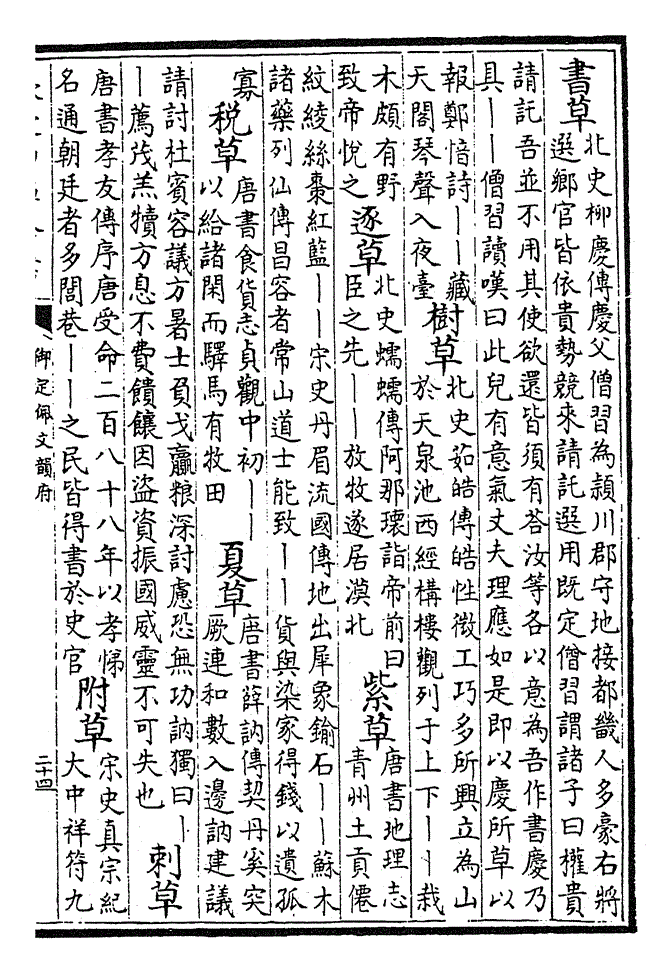 書草
北史柳慶傳慶父僧習為潁川郡守地接都畿人多豪右將
選鄉官皆依貴勢競來請託選用既定僧習謂諸子曰權貴
請託吾並不用其使欲還皆須有荅汝等各以意為吾作書慶乃
具——僧習讀嘆曰此兒有意氣丈夫理應如是即以慶所草以
報鄭愔詩——藏
天閣琴聲入夜臺
樹草
北史茹皓傳皓性微工巧多所興立為山
於天泉池西經構樓觀列于上下——栽
木頗有野
致帝悅之
逐草
北史蠕蠕傳阿那瓌詣帝前曰
臣之先——放牧遂居漠北
紫草
唐書地理志
青州土貢僊
紋綾絲棗紅藍——宋史丹眉流國傳地出犀象鍮石——蘇木
諸藥列仙傳昌容者常山道士能致——貨與染家得錢以遺孤
寡
稅草
唐書食貨志貞觀中初——
以給諸閑而驛馬有牧田
夏草
唐書薛訥傳契丹奚突
厥連和數入邊訥建議
請討杜賓客議方暑士負戈贏粮深討慮恐無功訥獨曰—
—薦茂羔犢方息不費饋饟因盜資振國威靈不可失也
刺草
唐書孝友傳序唐受命二百八十八年以孝悌
名通朝廷者多閭巷——之民皆得書於史官
附草
宋史真宗紀
大中祥符九
御定佩文韻府
二十四